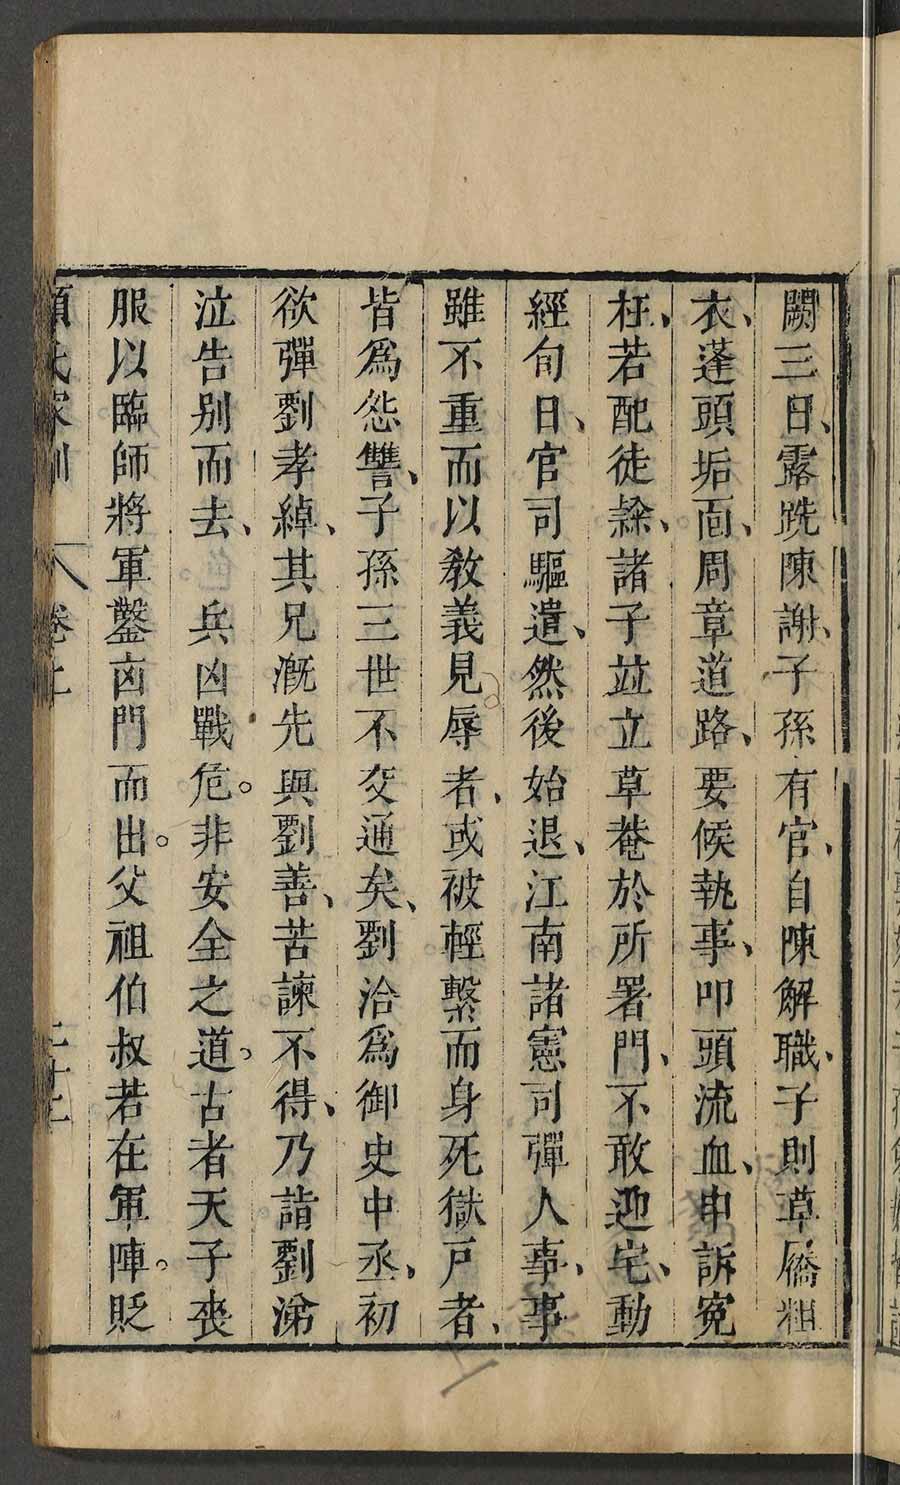 闕三日、露跣陳謝、子孫有官、自陳解職、子則草屩粗
衣、蓬頭垢面、周章道路、要候執事、叩頭流血、申訴冤
枉、若配徒隸、諸子竝立草菴於所署門、不敢迊宅、動
經旬日、官司驅遣、然後始退、江南諸憲司彈人事、事
雖不重而以教義見辱者、或被輕繫而身死獄戸者、
皆爲怨讐、子孫三世不交通矣、劉洽爲御史中丞、初
欲彈劉孝綽、其兄漑先與劉善、苦諫不得、乃詣劉涕
泣告别而去、兵凶戰危。非安全之道。古者天子喪
服以臨師將軍鑿凶門而出。父祖伯叔若在軍陣。貶
顔氏家訓 卷上 二十七